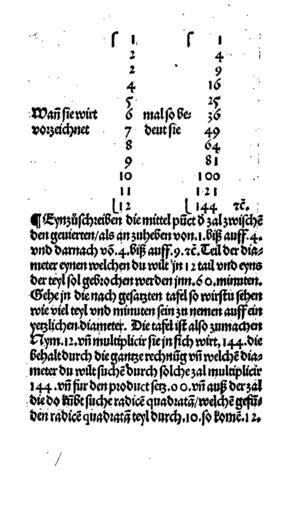 1 1
2 4
2 9
4 16
5 25
Wañ sie wirt 6 mal so be- 36
vorzeichnet 7 deut sie 49
8 64
9 81
10 100
11 121
12 144 ⁊c.
¶ Eynzůschreiben die mittel pũct d̕ zal zwischẽ
den gevierten/als an zuheben von.1.biß auff.4.
vnd darnach võ.4.biß auff.9.⁊c. Teil der dia-
meter eynen welchen du wilt in 12 tail vnd eyns
der teyl sol gebrochen werden jnn.60.minuten.
Gehe jn die nach gesatzten tafel so wirstu sehen
wie viel teyl vnd minuten sein zu nemen auff ein
yetzlichen diameter. Die tafel ist also zumachen
Nym.12.vñ multiplicir sie jn sich wirt,144.die
behalt durch die gantze rechnũg vñ welchẽ dia-
meter du wilt suchẽ durch solche zal multiplicir
144.vñ fur den product setz.00.vñ auß der zal
die do kũbt suche radicẽ quadratã/welchẽ gefũ-
den radicẽ quadratã teyl durch.10.so komẽ.12.